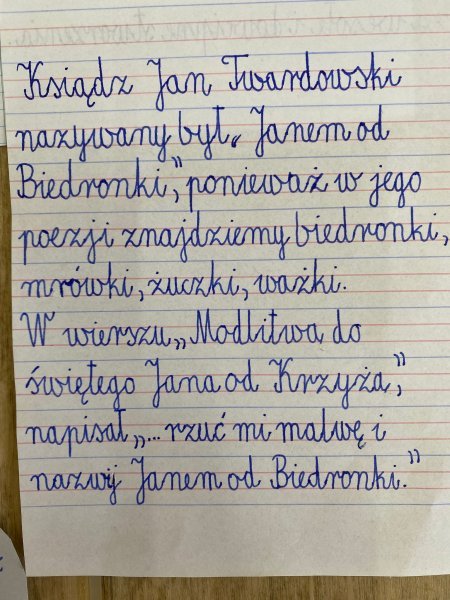 Ksiądz Jan Twardowski
nazywany był „Janem od
Biedronki”, ponieważ w jego
poezji znajdziemy biedronki,
mrówki, żuczki, ważki.
W wierszu „Modlitwa do
świętego Jana od Krzyża”,
napisał „... rzuć mi malwę i
nazwij Janem od Biedronki.”